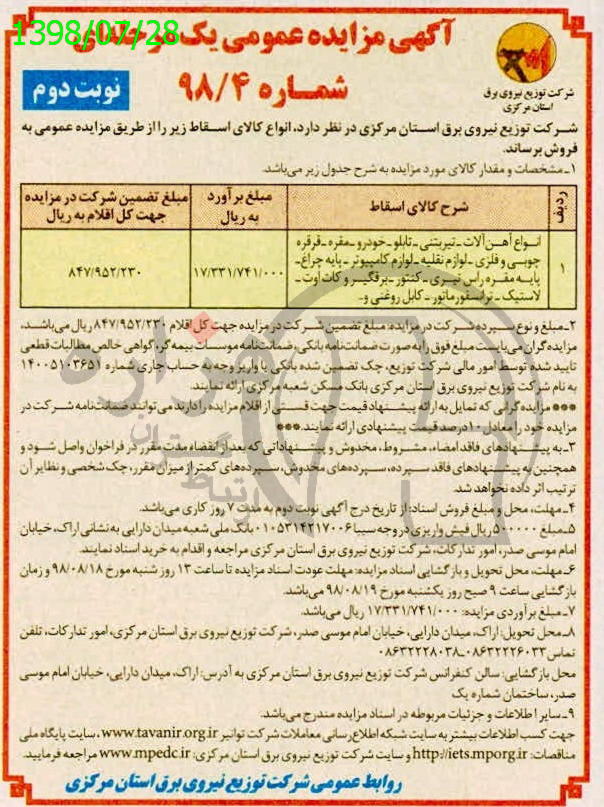 1398/07/28
آگهی مزایده عمومی یک مرحله‌ای
شماره ۹۸/۴
نوبت دوم
شرکت توزیع نیروی برق
استان مرکزی
شرکت توزیع نیروی برق استان مرکزی در نظر دارد، انواع کالای اسقاط زیر را از طریق مزایده عمومی به
فروش برساند.
۱ـ مشخصات و مقدار کالای مورد مزایده به شرح جدول زیر می‌باشد.
ردیف
شرح کالای اسقاط
مبلغ برآورد
به ریال
مبلغ تضمین شرکت در مزایده
جهت کل اقلام به ریال
۱
انواع آهن آلات ـ تیربتنی ـ تابلو ـ خودرو ـ مقره ـ قرقره
چوبی و فلزی ـ لوازم نقلیه ـ لوازم کامپیوتر ـ پایه چراغ ـ
پایه مقره راس تیری ـ کنتور ـ برقگیر و کات اوت ـ
لاستیک ـ ترانسفورماتور ـ کابل روغنی و...
۱۷/۳۳۱/۷۴۱/۰۰۰
۸۴۷/۹۵۲/۲۳۰
۲ـ مبلغ و نوع سپرده شرکت در مزایده: مبلغ تضمین شرکت در مزایده جهت کل اقلام ۸۴۷/۹۵۲/۲۳۰ ریال می‌باشد،
مزایده‌گران می‌بایست مبلغ فوق را به صورت ضمانت‌نامه بانکی، ضمانت‌نامه موسسات بیمه‌گر، گواهی خالص مطالبات قطعی
تایید شده توسط امور مالی شرکت توزیع، چک تضمین شده بانکی یا واریز وجه به حساب جاری شماره ۱۴۰۰۵۱۰۳۶۵۱
به نام شرکت توزیع نیروی برق استان مرکزی بانک مسکن شعبه مرکزی ارائه نمایند.
*** مزایده‌گرانی که تمایل به ارائه پیشنهاد قیمت جهت قسمتی از اقلام مزایده را دارند می‌توانند ضمانت‌نامه شرکت در
مزایده خود را معادل ۱۰درصد قیمت پیشنهادی ارائه نمایند.***
۳ـ به پیشنهادهای فاقد امضاء، مشروط، مخدوش و پیشنهاداتی که بعد از انقضاء مدت مقرر در فراخوان واصل شود و
همچنین به پیشنهادهای فاقد سپرده، سپرده‌های مخدوش، سپرده‌های کمتر از میزان مقرر، چک شخصی و نظایر آن
ترتیب اثر داده نخواهد شد.
۴ـ مهلت، محل و مبلغ فروش اسناد: از تاریخ درج آگهی نوبت دوم به مدت ۷ روز کاری می‌باشد.
۵ـ مبلغ ۵۰۰۰۰۰ ریال فیش واریزی در وجه سیبا ۰۱۰۵۳۱۴۲۱۷۰۰۶ بانک ملی شعبه میدان دارایی به نشانی اراک، خیابان
امام موسی صدر، امور تدارکات، شرکت توزیع نیروی برق استان مرکزی مراجعه و اقدام به خرید اسناد نمایند.
۶ـ مهلت، محل تحویل و بازگشایی اسناد مزایده: مهلت عودت اسناد مزایده تا ساعت ۱۳ روز شنبه مورخ ۹۸/۰۸/۱۸ و زمان
بازگشایی ساعت ۹ صبح روز یکشنبه مورخ ۹۸/۰۸/۱۹ می‌باشد.
۷ـ مبلغ برآوردی مزایده: ۱۷/۳۳۱/۷۴۱/۰۰۰ ریال می‌باشد.
۸ـ محل تحویل: اراک، میدان دارایی، خیابان امام موسی صدر، شرکت توزیع نیروی برق استان مرکزی، امور تدارکات، تلفن
تماس ۰۸۶۳۲۲۲۶۰۳۳ـ۰۸۶۳۲۲۲۸۰۳۸
محل بازگشایی: سالن کنفرانس شرکت توزیع نیروی برق استان مرکزی به آدرس: اراک، میدان دارایی، خیابان امام موسی
صدر، ساختمان شماره یک
۹ـ سایر اطلاعات و جزئیات مربوطه در اسناد مزایده مندرج می‌باشد.
جهت کسب اطلاعات بیشتر به سایت شبکه اطلاع‌رسانی معاملات شرکت توانیر www.tavanir.org.ir، سایت پایگاه ملی
مناقصات: http://iets.mporg.ir و سایت شرکت توزیع نیروی برق استان مرکزی: www.mpedc.ir مراجعه فرمایید.
روابط عمومی شرکت توزیع نیروی برق استان مرکزی